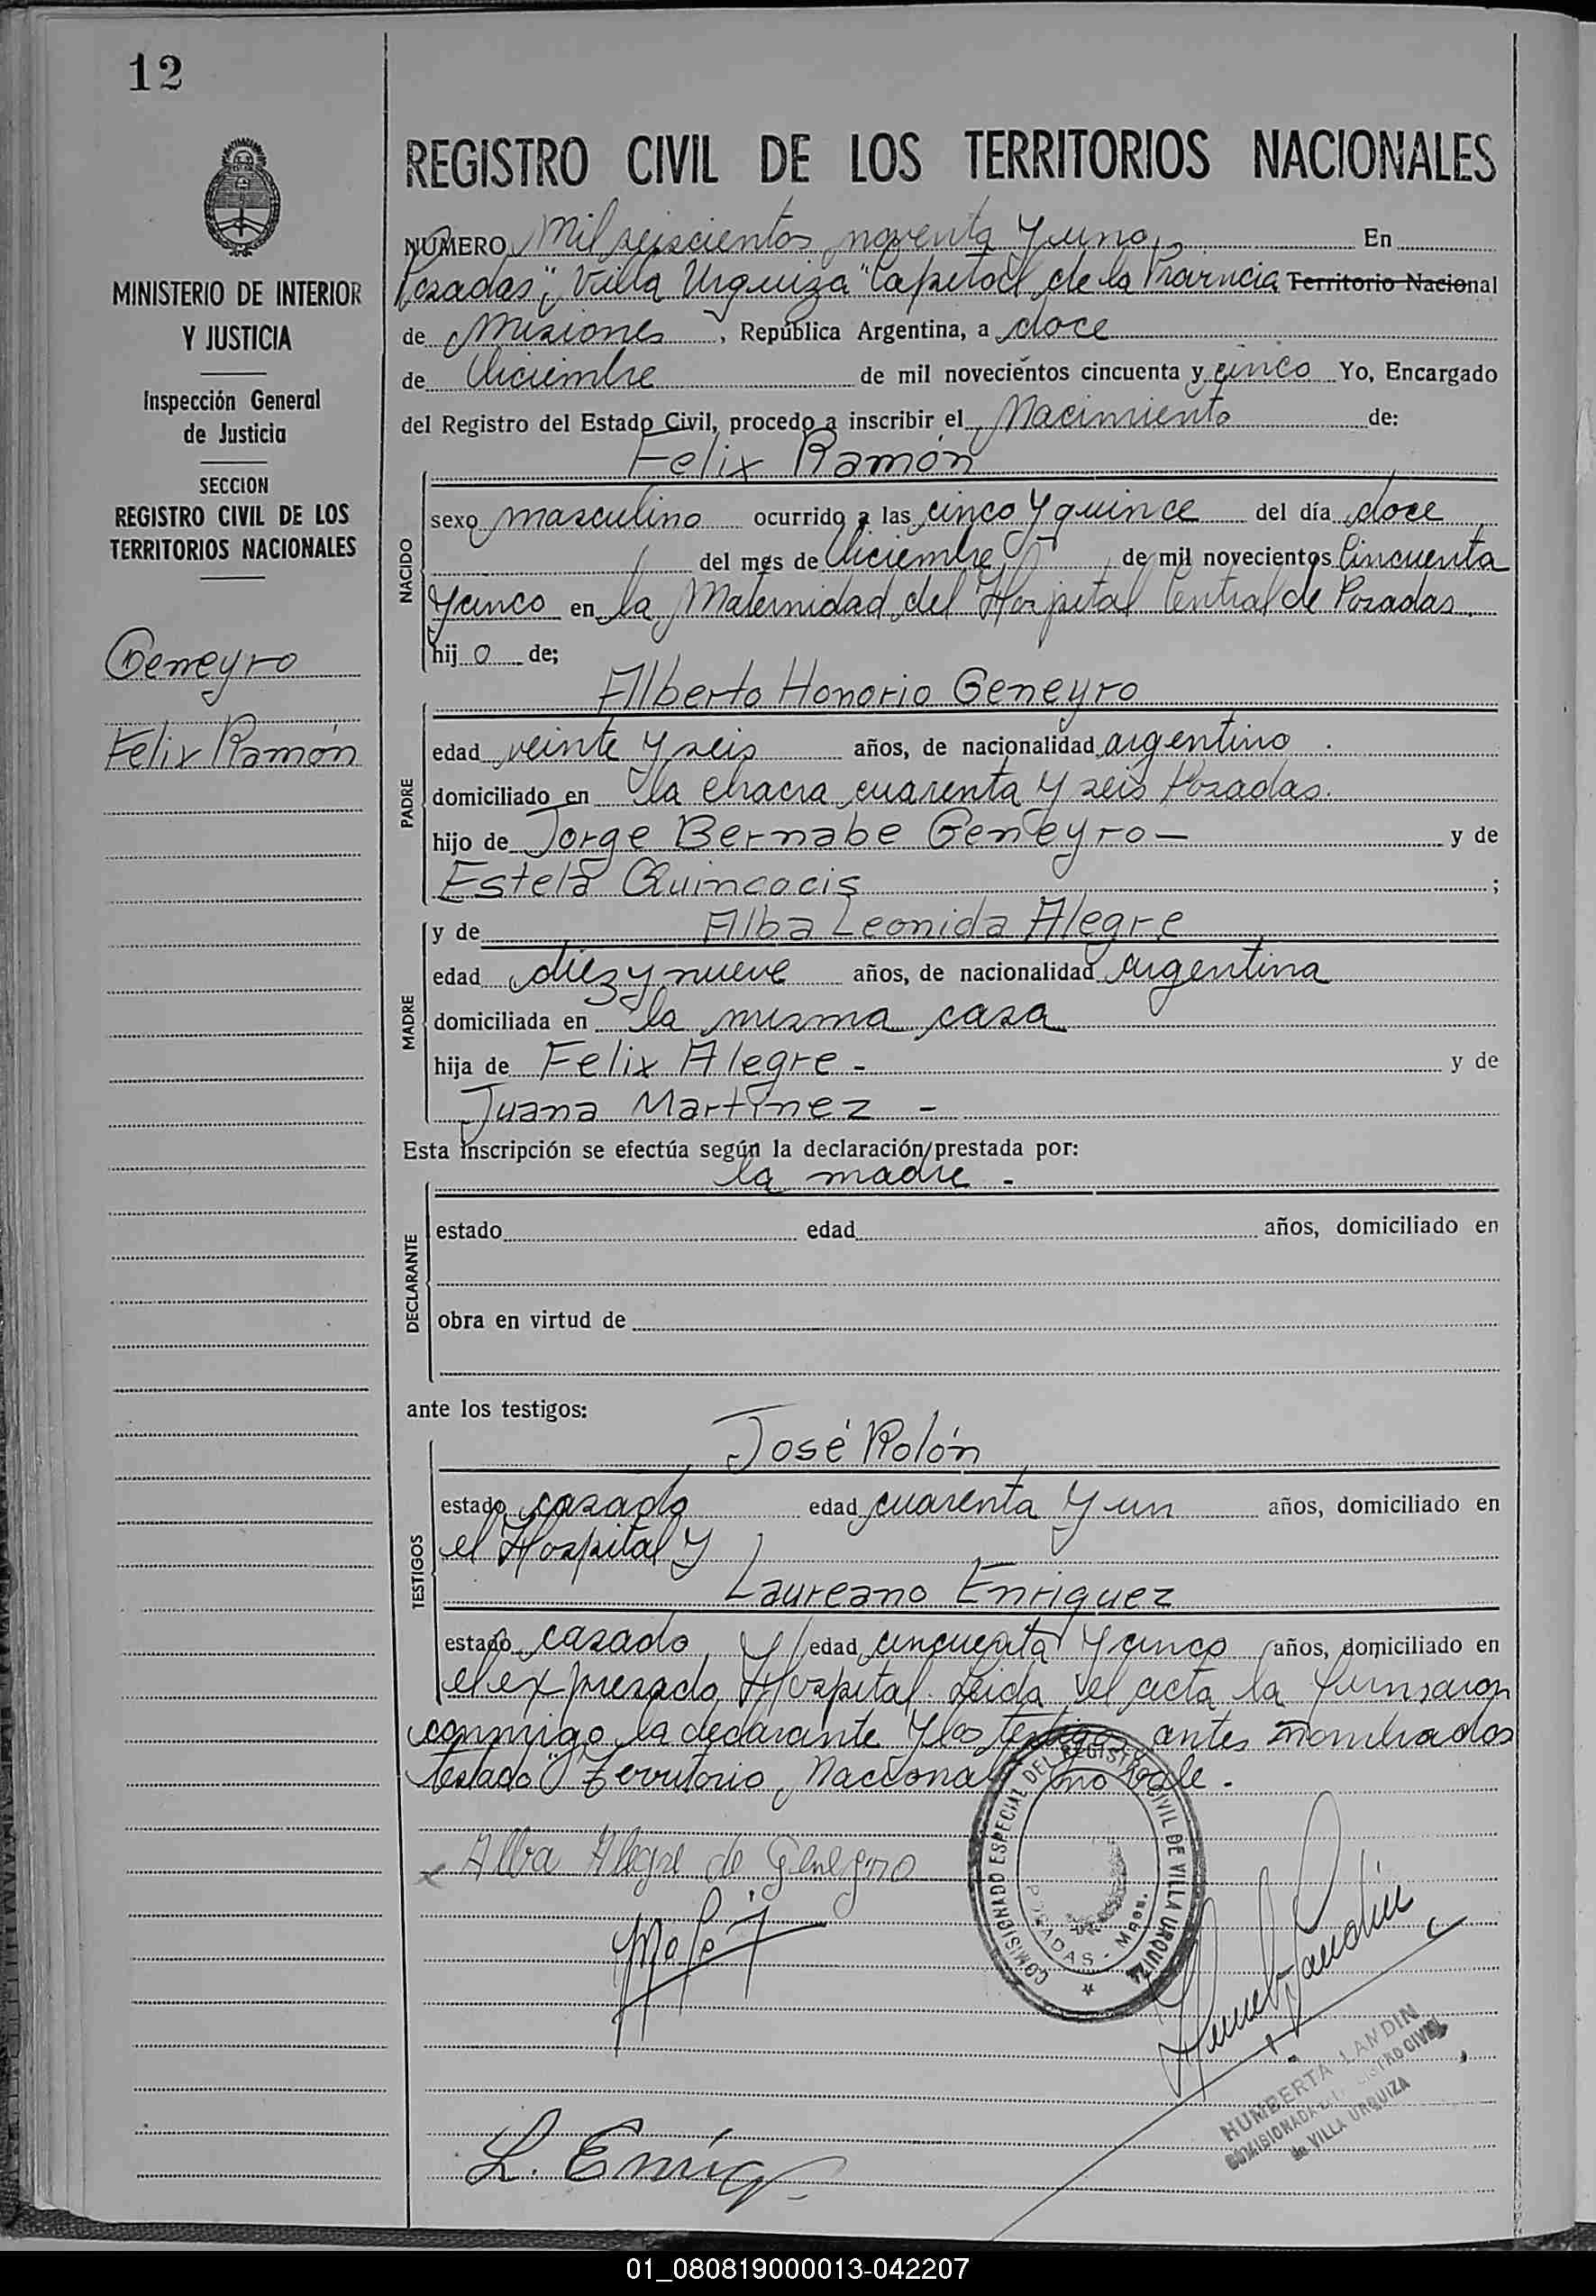 12
MINISTERIO DE INTERIOR
Y JUSTICIA
Inspección General
de Justicia
SECCION
REGISTRO CIVIL DE LOS
TERRITORIOS NACIONALES
Geneyro
Felix Ramón
REGISTRO CIVIL DE LOS TERRITORIOS NACIONALES
NUMERO Mil seiscientos noventa y uno En
Posadas, "Villa Urquiza" Capital de la Provincia Territorio Nacional
de Misiones, República Argentina, a doce
de Diciembre de mil novecientos cincuenta y cinco Yo, Encargado
del Registro del Estado Civil, procedo a inscribir el Nacimiento de:
Felix Ramón
NACIDO
sexo masculino ocurrido a las cinco y quince del día doce
del mes de Diciembre de mil novecientos Cincuenta
y cinco en la Maternidad del Hospital Central de Posadas.
hijo de;
Alberto Honorio Geneyro
PADRE
edad veinte y seis años, de nacionalidad argentino.
domiciliado en la chacra cuarenta y seis Posadas.
hijo de Jorge Bernabe Geneyro — y de
Estela Quincocis ;
y de Alba Leonida Alegre
MADRE
edad diez y nueve años, de nacionalidad argentina
domiciliada en la misma casa
hija de Felix Alegre - y de
Juana Martinez -
Esta inscripción se efectúa según la declaración prestada por:
la madre -
DECLARANTE
estado edad años, domiciliado en
obra en virtud de
ante los testigos:
José Rolón
TESTIGOS
estado casado edad cuarenta y un años, domiciliado en
el Hospital y
Laureano Enriquez
estado casado y edad cincuenta y cinco años, domiciliado en
el expresado Hospital. Leida el acta la firmaron
conmigo la declarante y los testigos antes nombrados
testado "Territorio Nacional" no vale.
COMISIONADO ESPECIAL DEL REGISTRO CIVIL DE VILLA URQUIZA
POSADAS - Mnes.
x Alba Alegre de Geneyro
HUMBERTA LANDIN
COMISIONADA REGISTRO CIVIL
de VILLA URQUIZA
L. Enriq
01_080819000013-042207